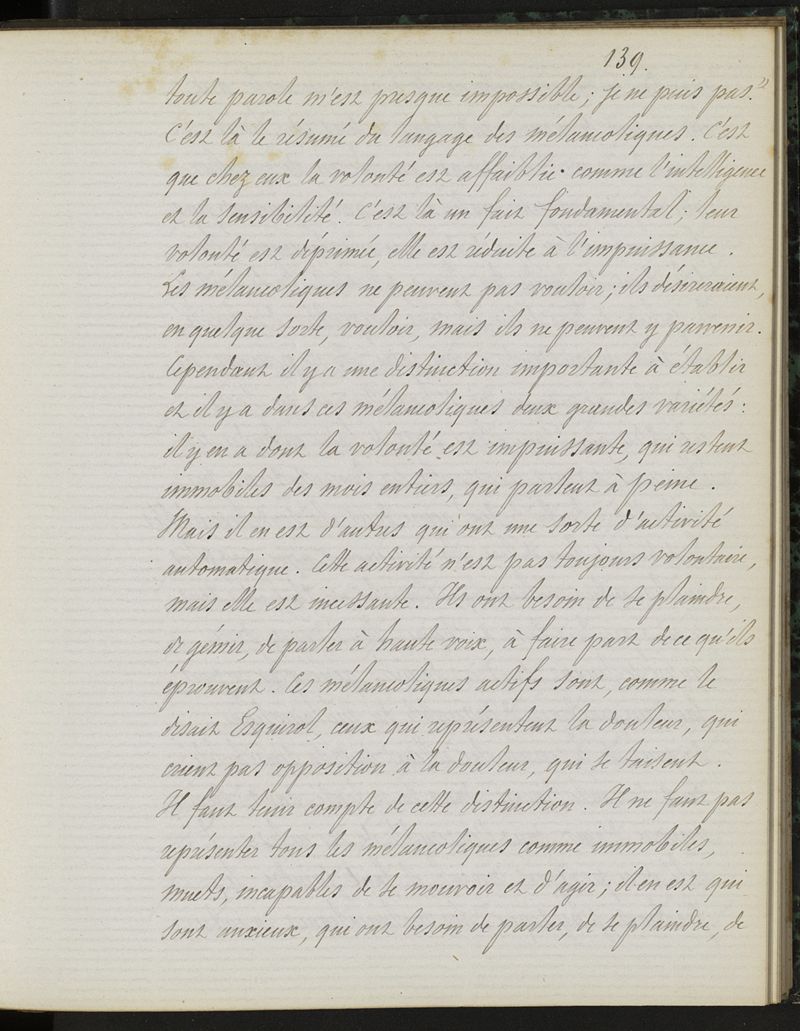 139.
toute parole m'est presque impossible; je ne puis pas."
C'est là le résumé du langage des mélancoliques. C'est
que chez eux la volonté est affaiblie comme l'intelligence
et la sensibilité. C'est là un fait fondamental; leur
volonté est déprimée, elle est réduite à l'impuissance.
Les mélancoliques ne peuvent pas vouloir; ils désireraient,
en quelque sorte, vouloir, mais ils ne peuvent y parvenir.
Cependant il y a une distinction importante à établir
et il y a dans ces mélancoliques deux grandes variétés:
il y en a dont la volonté est impuissante, qui restent
immobiles des mois entiers, qui parlent à peine.
Mais il en est d'autres qui ont une sorte d'activité
automatique. Cette activité n'est pas toujours volontaire,
mais elle est incessante. Ils ont besoin de se plaindre,
de gémir, de parler à haute voix, à faire part de ce qu'ils
éprouvent. Ces mélancoliques actifs sont, comme le
disait Esquirol, ceux qui représentent la douleur, qui
crient pas opposition à la douleur, qui se taisent.
Il faut tenir compte de cette distinction. Il ne faut pas
représenter tous les mélancoliques comme immobiles,
muets, incapables de se mouvoir et d'agir; il en est qui
sont anxieux, qui ont besoin de parler, de se plaindre, de